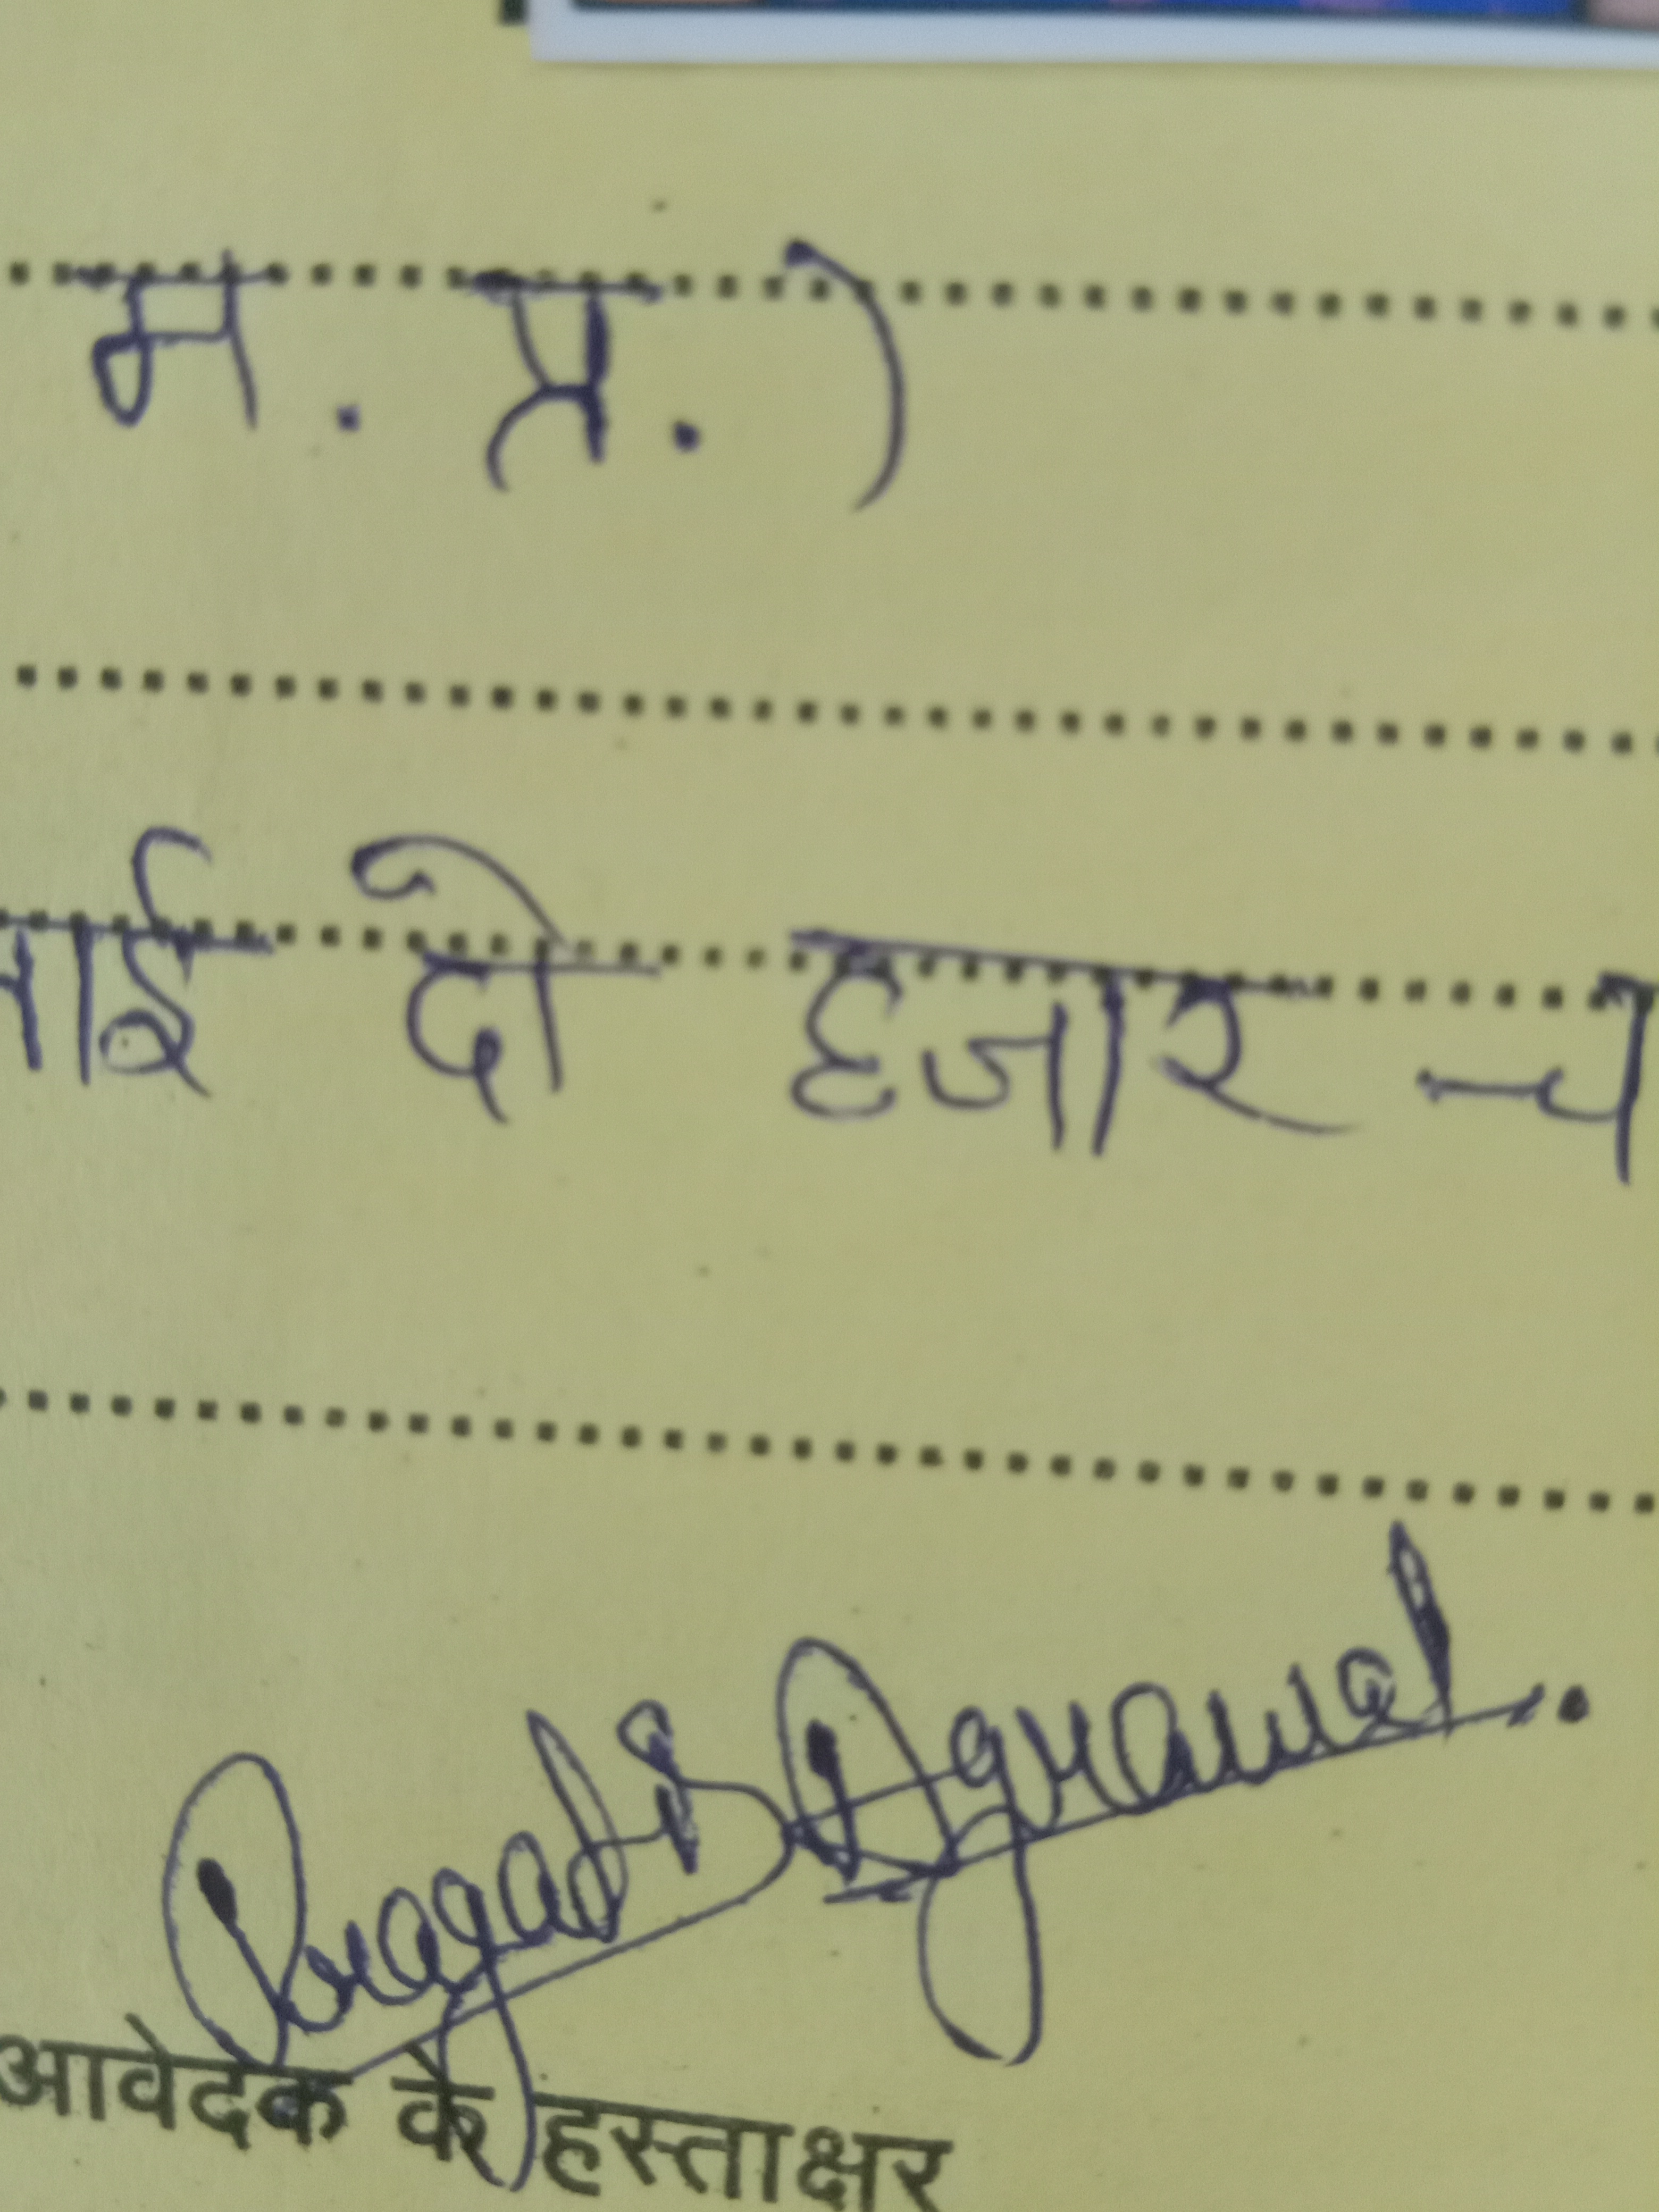 म. प्र.)
लाई दो हजार च
Pragati Agrawal.
आवेदक के हस्ताक्षर